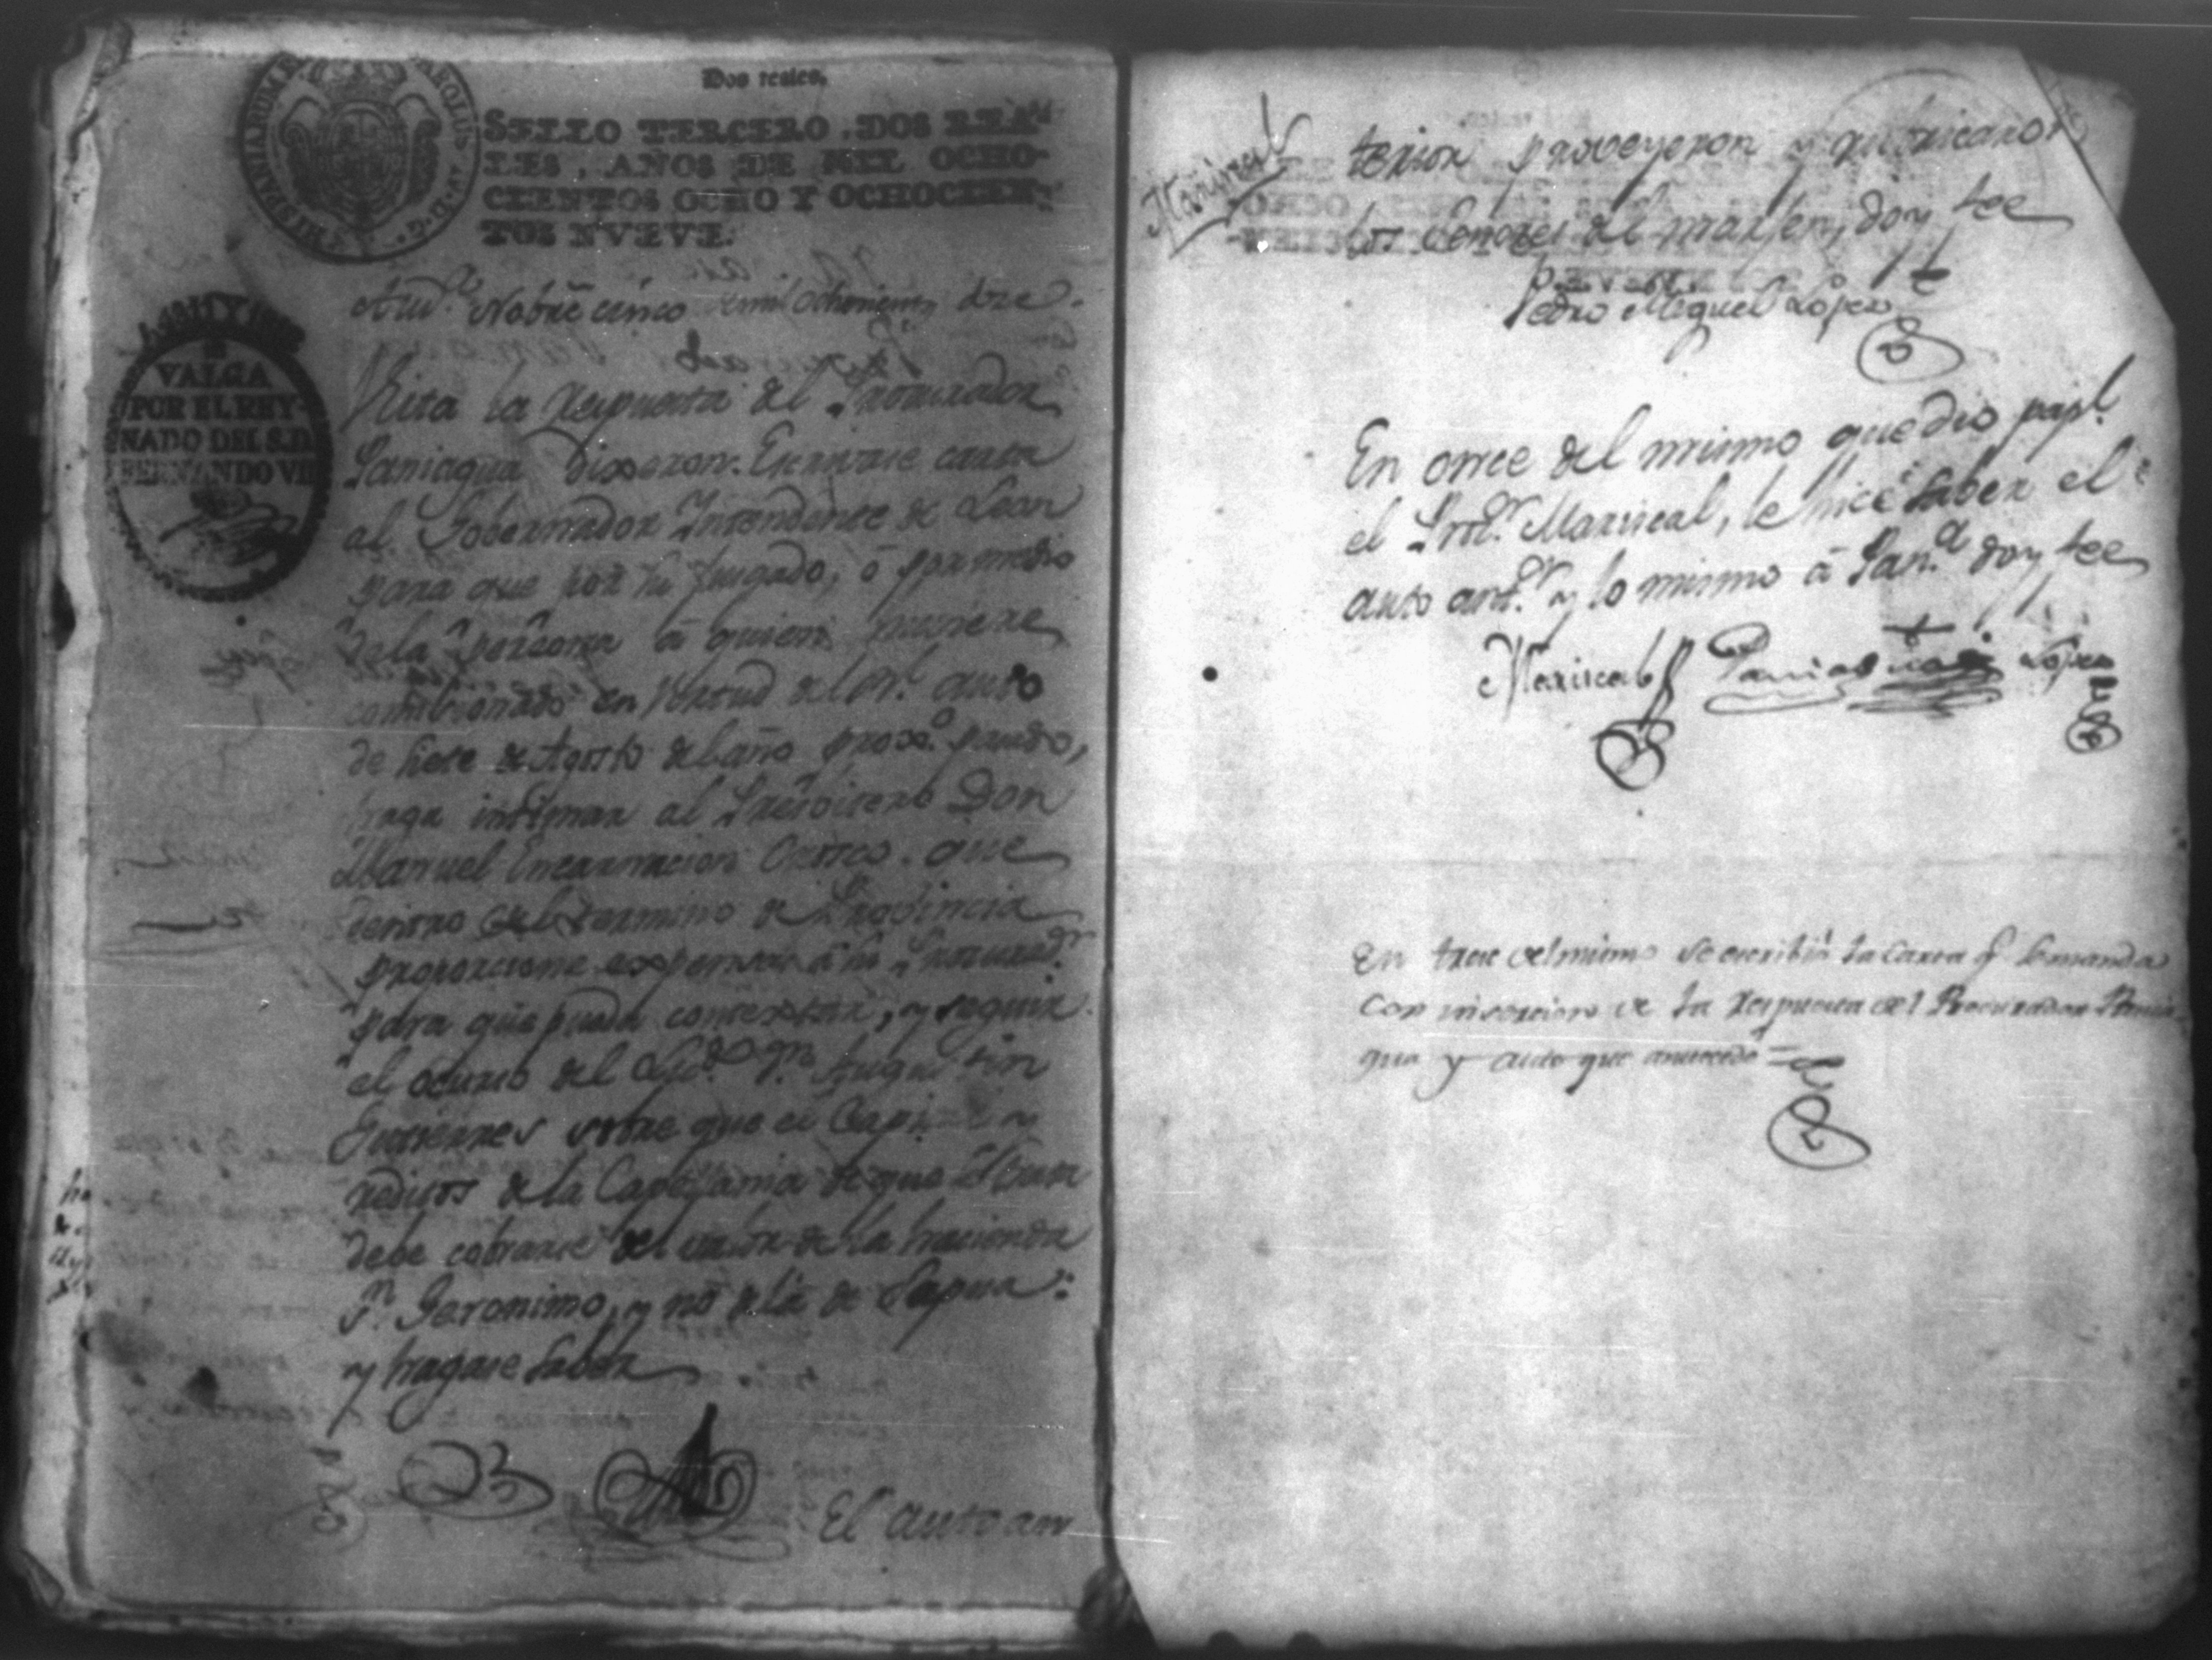 Dos reales.
SELLO TERCERO. DOS REA-
LES, AÑOS DE MIL OCHO-
CIENTOS OCHO Y OCHOCIEN-
TOS NVEVE.
HISPANIARUM R CAROLUS D. G.
VALGA
POR EL REY-
NADO DEL S.D.
FERNANDO VII
Nobrē cinco de mil ochocientos doze.
Vista la respuesta del Procurador
Paniagua Dixeron. Escrivase carta
al Gobernador Yntendente de Leon
para que por su Jusgado, ó por medio
de la persona á quien tuviere
comicionado en Virtud del Orl. auto
de siete de Agosto del año proxo. pasado,
haga intimar al Presvitero Don
Manuel Encarnacion Orosco. que
dentro del termino de Provincia
proporcione expensas á su Procurador.
para que pueda contextar, y seguir
el ocurso del Lizdo. Dn. Augustin
Gutierres sobre que el Capital y
reditos de la Capellania de que se trata
debe cobrarse del valor de la hacienda
Sn. Geronimo, y no de la de Sapua:
y hagase saber
El auto an
Mariscal
terior proveyeron y rubricaron
los Señores del marjen, doy fee
Pedro Miguel Lopez
En once del mismo que dio papl.
el Pror. Mariscal, le hice saber el
auto antr. y lo mismo á Pana. doy fee
Mariscal Paniagua Lopez
En trece del mismo se escribió la carta q. se manda
con insercion de la respuesta del Procurador Pania
gua y auto que antecede =